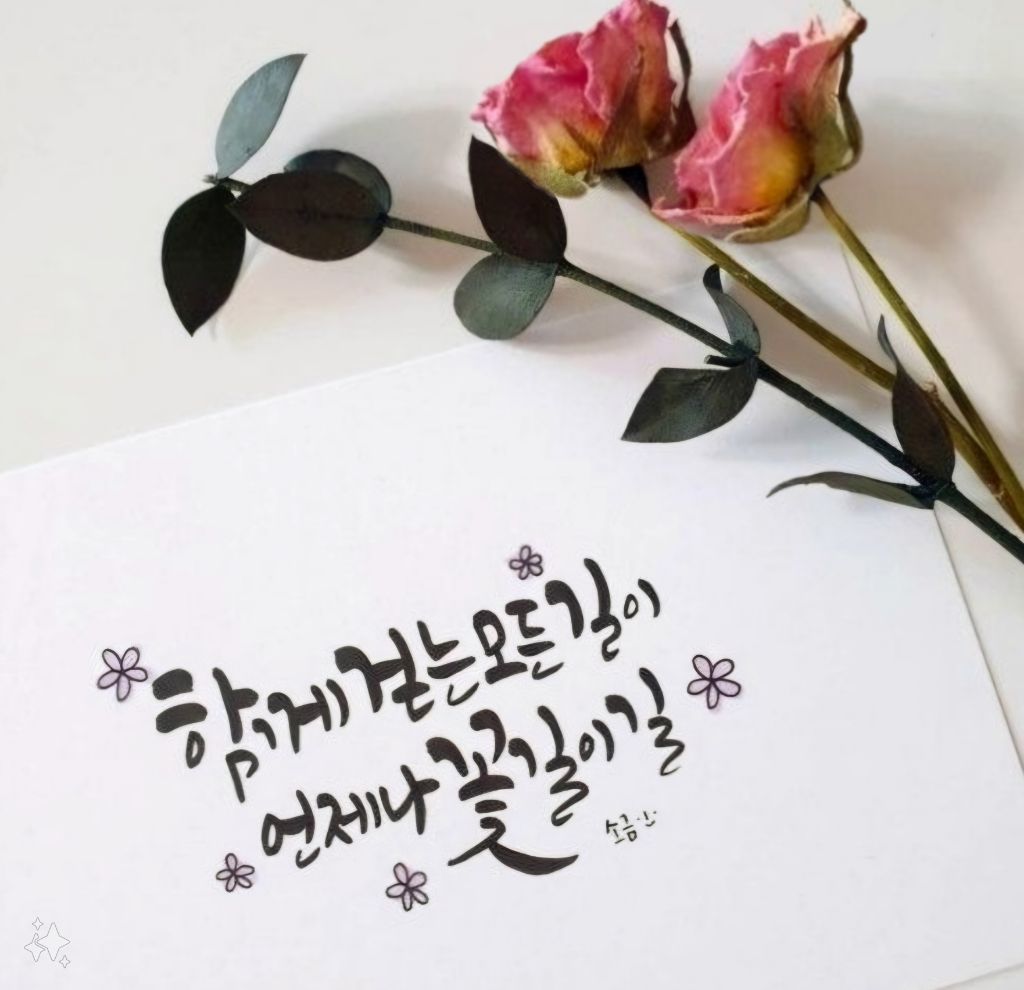 함께 걷는 모든 길이
언제나 꽃길이길